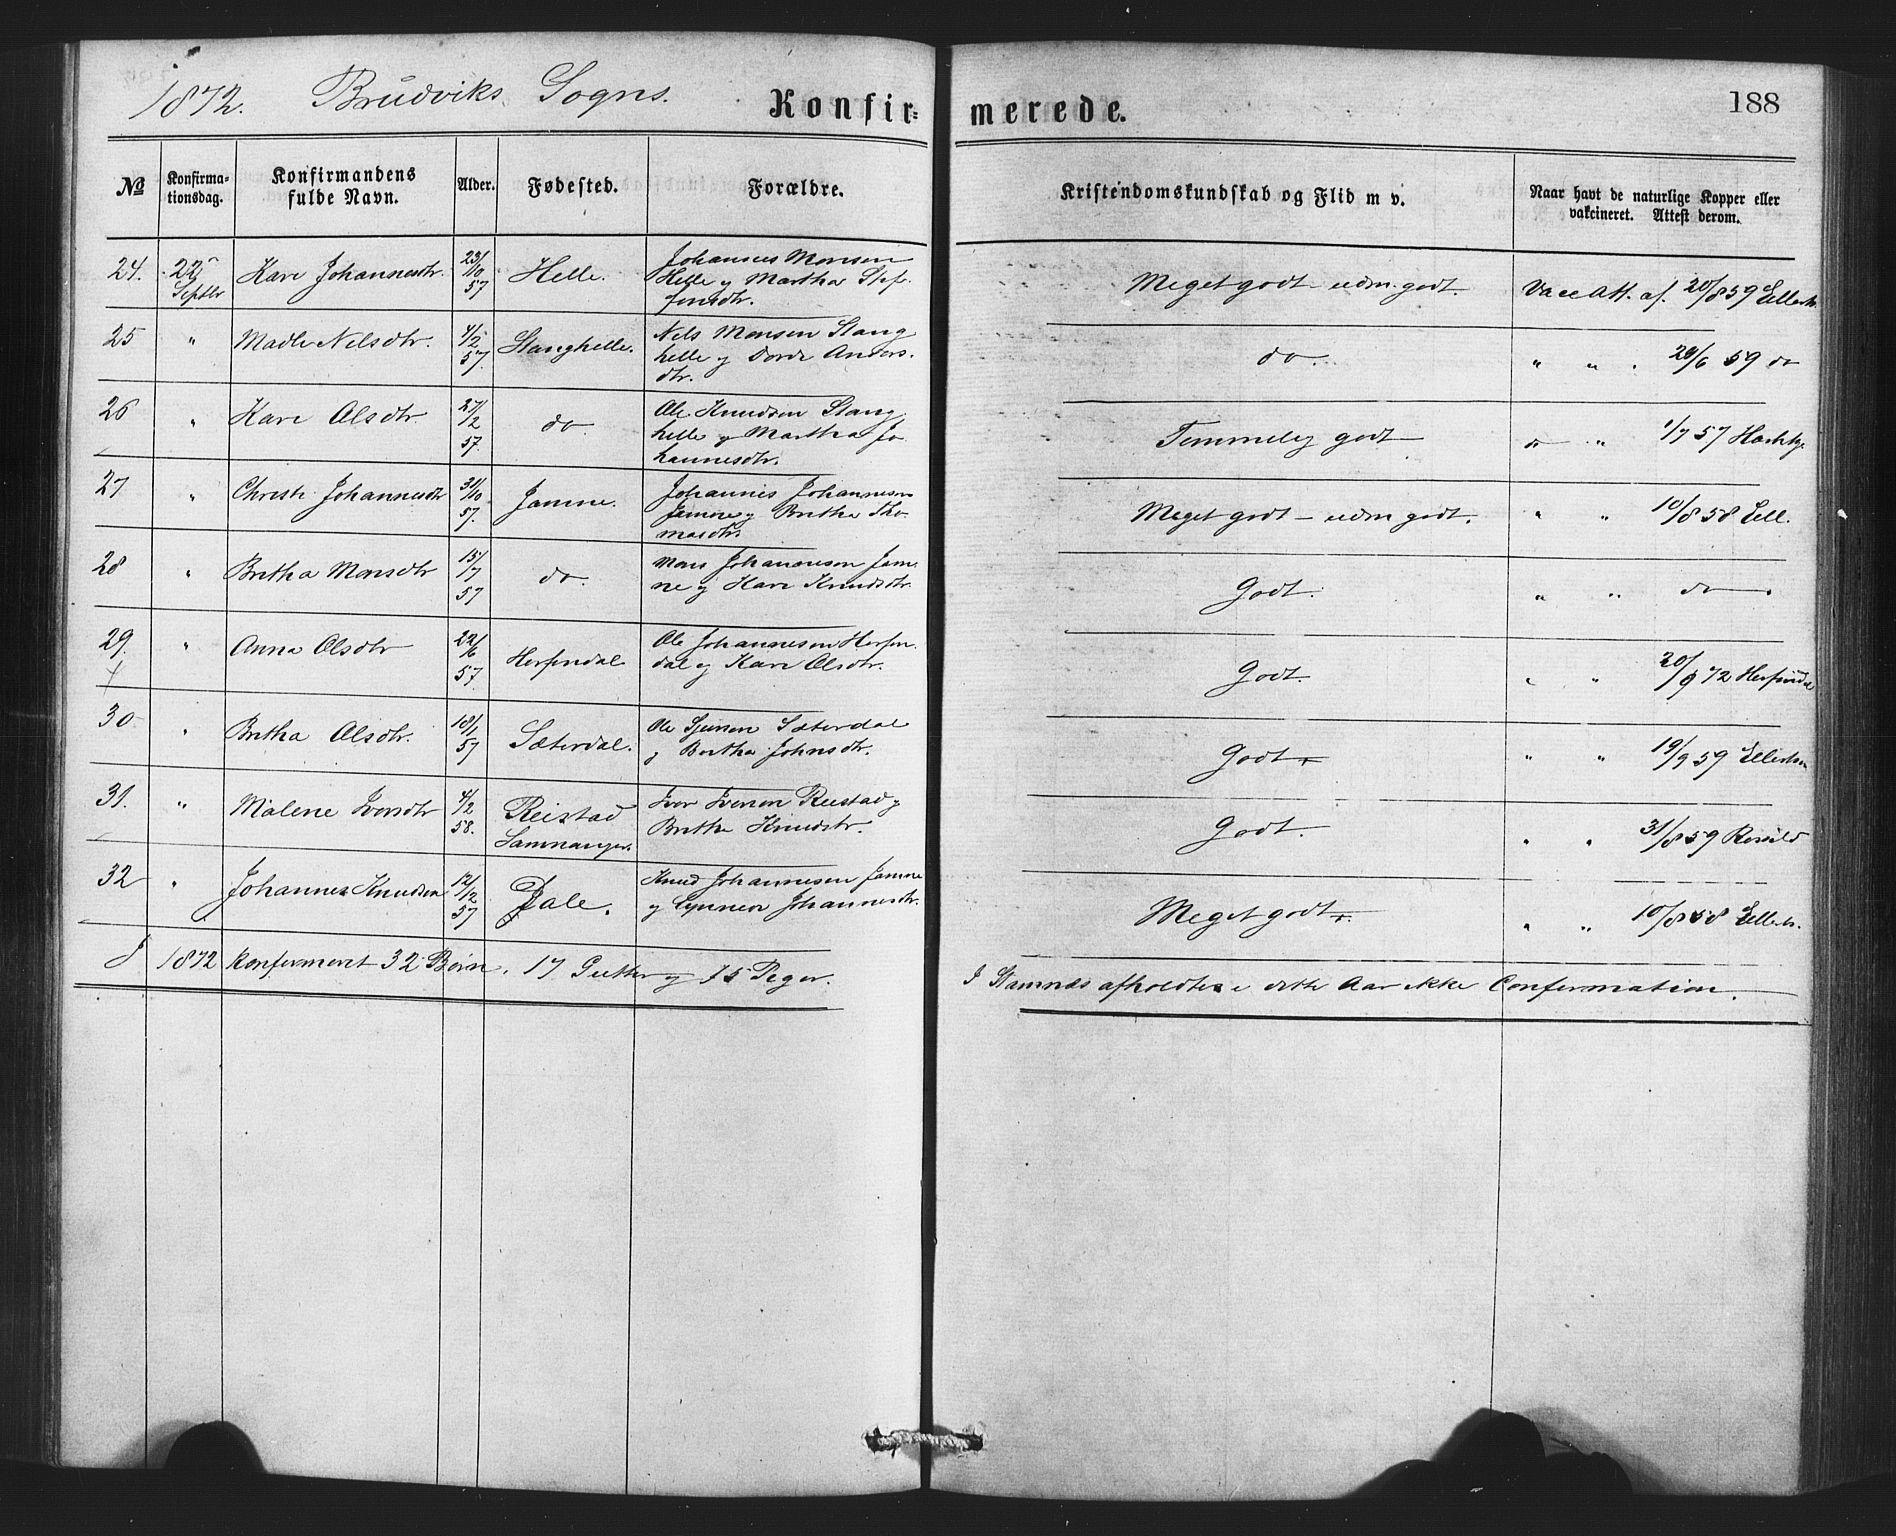 1872. Brudviks Sogns. Konfir-
merede. 188
No Konfirma-
tionsdag. Konfirmandens
fulde Navn. Alder. Fødested. Forældre. Kristendomskundskab og Flid m v. Naar havt de naturlige Kopper eller
vakcineret. Attest derom.
24. 22
Septbr Kari Johannesdtr. 23/10
57 Helle. Johannes Monsen
Helle og Martha Stef-
fensdtr. Meget godt udm. godt. Vacc Att. af. 20/8 59
25 " Madle Nilsdtr. 4/2
57. Stanghelle. Nils Monsen Stang
helle og Anders-
dtr. do. " " . 28/6 59 do
26 " Kari Olsdtr. 27/2
57. do. Ole Knudsen Stang
helle og Martha Jo
hannesdtr. Temmelig godt do " 1/7 57
27 " Johannesdtr 31/10
57. Jamne. Johannes Johannesen
Jamne og Britha Tho-
masdtr. Meget godt - udm godt. " " 10/8 58 Ell.
28 " Britha Monsdtr 15/7
57 do. Mons Johannesen Jam
ne og Kari Knudsdtr. Godt. " " do.
29. " Anna Olsdtr 22/6
57. Herfindal Ole Johannesen Herfin
dal og Kari Olsdtr. Godt. " " 20/9 72 Herfindal
30 " Britha Olsdtr. 18/1
57 Sæterdal. Ole Sæterdal
og Britha Johnsdtr. Godt " " 19/9 59
31. " Malene Iversdtr 4/2
58. Reistad
Samnanger. Iver Iversen Reistad og
Britha Knudsdtr. Godt. " " 31/8 59
32 " Johannes Knudsen 12/12
57 Dale. Knud Johannesen Jamne
og Johannesdtr. Meget godt. " " 10/8 58
I 1872 Konfirmeret 32 Børn. 17 Gutter og 15 Piger.
I Stamnæs afholdtes i dette Aar ikke Confirmation.